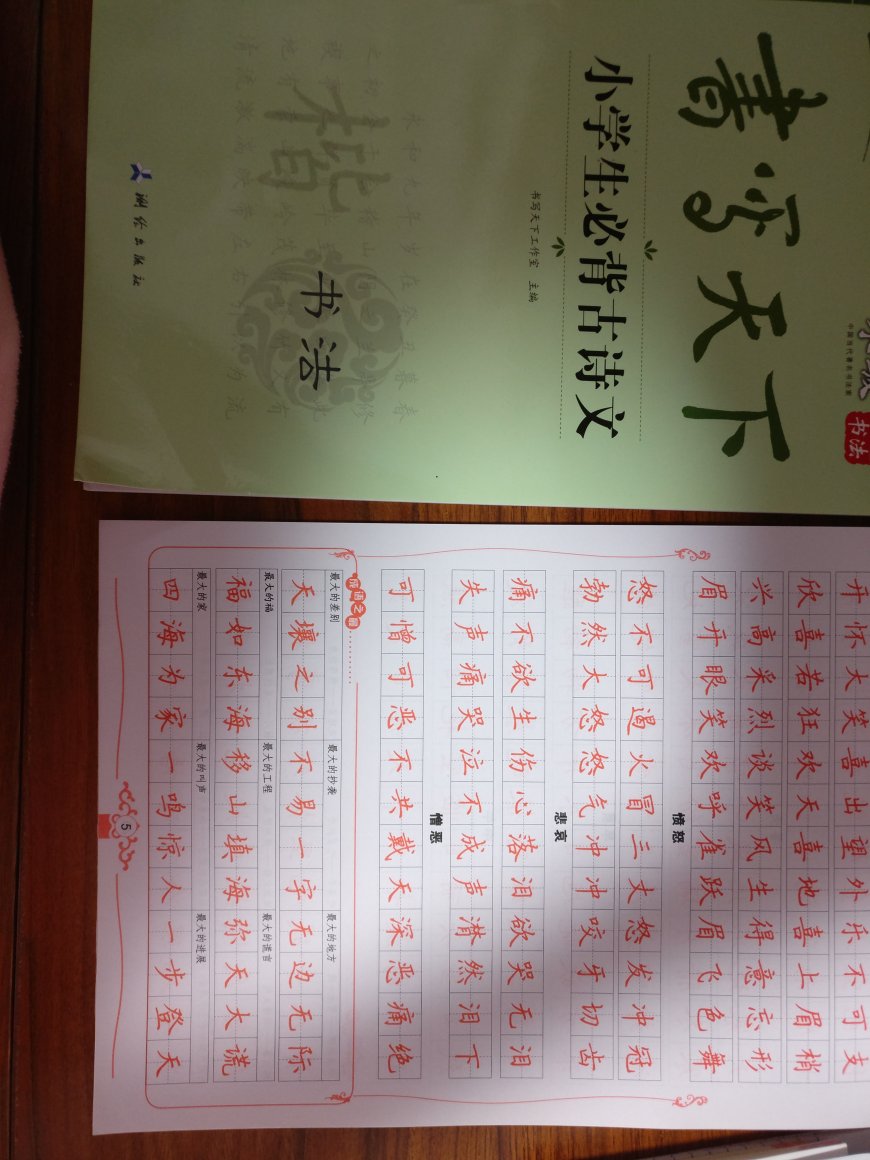 書写天下
小学生必背古诗文
书写天下工作室 主编
楷
书法
书法
中国当代著名书法家
升怀大笑喜出望外乐不可支
欣喜若狂欢天喜地喜上眉梢
兴高采烈谈笑风生得意忘形
眉开眼笑欢呼雀跃眉飞色舞
愤怒
怒不可遏火冒三丈怒发冲冠
勃然大怒怒气冲冲咬牙切齿
悲哀
痛不欲生伤心落泪欲哭无泪
失声痛哭泣不成声潸然泪下
憎恶
可憎可恶不共戴天深恶痛绝
成语之最
最大的差别 最大的抄表 最大的地方
天壤之别不易一字无边无际
最大的福 最大的工程 最大的谎言
福如东海移山填海弥天大谎
最大的家 最大的叫声 最大的进展
四海为家一鸣惊人一步登天
5